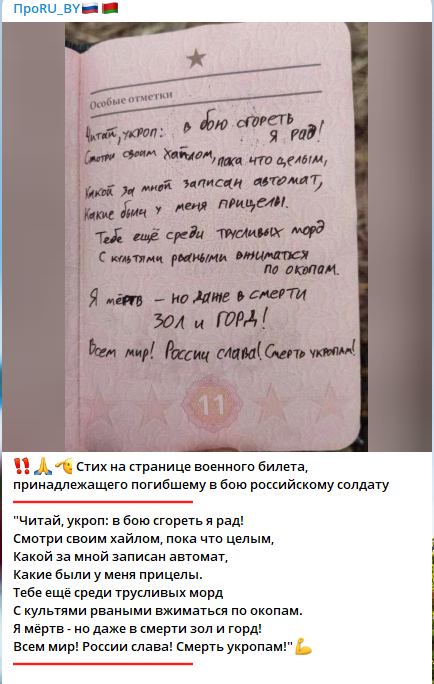 ПроRU_BY
Особые отметки
Читай, укроп: в бою сгореть
я рад!
Смотри своим хайлом, пока что целым,
Какой за мной записан автомат,
Какие были у меня прицелы.
Тебе ещё среди трусливых морд
С культями рваными вжиматься
по окопам.
Я мёртв – но даже в смерти
ЗОЛ и ГОРД!
Всем мир! России слава! Смерть укропам!
11
Стих на странице военного билета,
принадлежащего погибшему в бою российскому солдату
"Читай, укроп: в бою сгореть я рад!
Смотри своим хайлом, пока что целым,
Какой за мной записан автомат,
Какие были у меня прицелы.
Тебе ещё среди трусливых морд
С культями рваными вжиматься по окопам.
Я мёртв - но даже в смерти зол и горд!
Всем мир! России слава! Смерть укропам!"